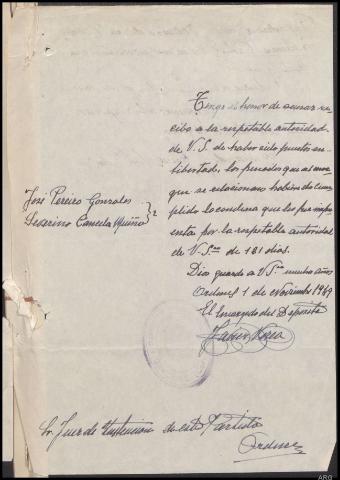 Tengo el honor de acusar re-
cibo a la respetable autoridad
de V.S. de haber sido puestos en
libertad, los penados que al margen
que se relacionan habiendo cum-
plido la condena que les fue impu-
esta por la respetable autoridad
de V.S. de 181 dias.
Dios guarde a V.S. muchos años
Ordenes 1 de Noviembre 1949
El Encargado del Deposito
José Pereiro Gonzales
Severino Cancela Muiño } 2
Sr. Juez de Instrucion de este Partido
Ordenes
ARG